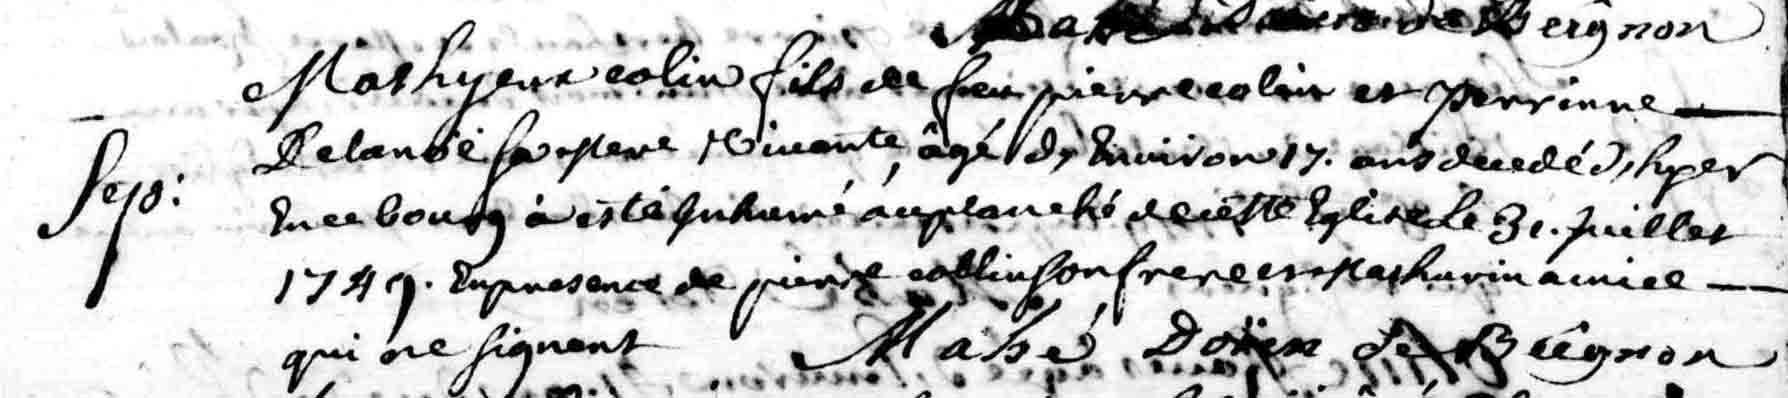 Mahé Doien de Beignon
Mathyeux colin fils de feu pierre colin et perrinne
Delanoë sa mere vivante, âgé d'Environ 17. ans decedé d'hyer
Sep:
En ce bourg à esté Inhumé au planché de cette Eglise Le 31. Juillet
1749. En presence de pierre collin son frere et Mathurin
qui ne signent Mahé Doïen de Beîgnon